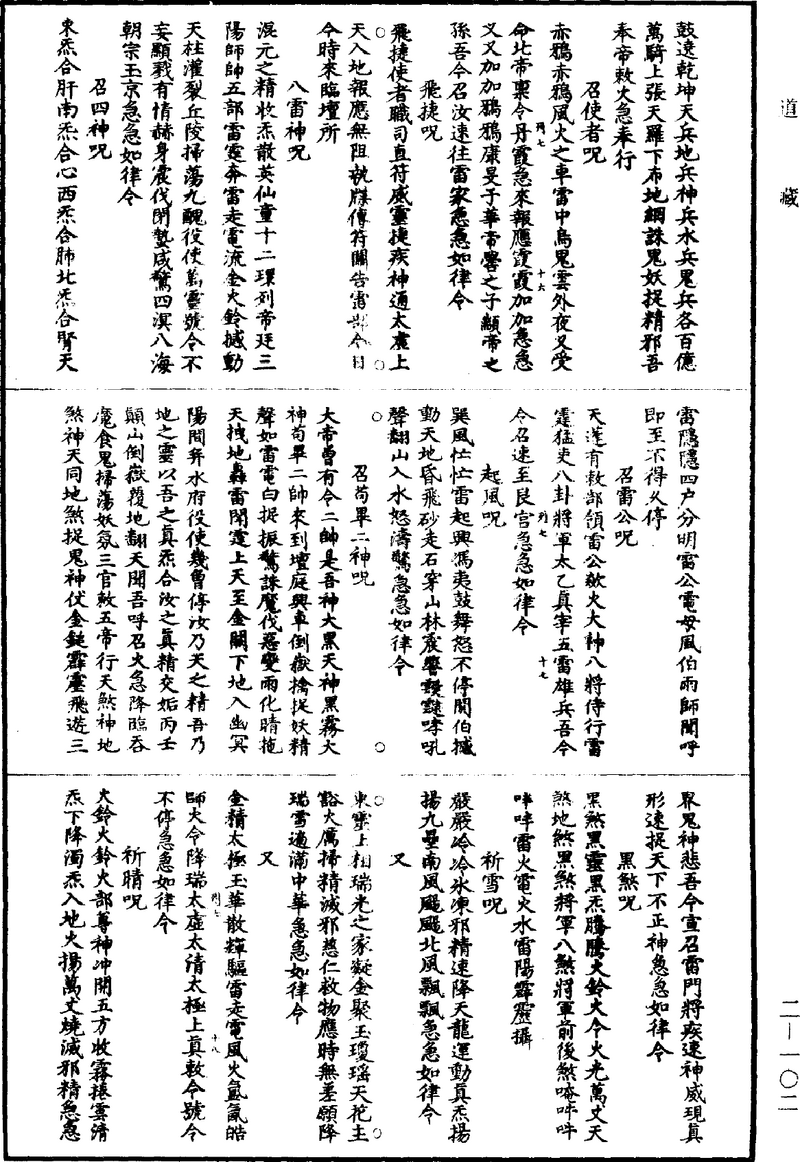 道藏
鼓遶乾坤天兵地兵神兵水兵鬼兵各百億
萬騎上張天羅下布地網誅鬼妖捉精邪吾
奉帝敕火急奉行
召使者呪
赤鴉赤鴉風火之車雷中鳥鬼雲外夜叉受
命北帝稟令丹霞急來報應霞霞加加急急
叉叉加加鴉鴉康旻子華帝嚳之子顓帝之
孫吾今召汝速往雷家急急如律令
飛捷呪
飛捷使者職司直符威靈捷疾神通太虛上
天入地報應無阻執牒傳符關告雷部今日
今時來臨壇所
八雷神呪
混元之精收炁散英仙童十二環列帝廷三
陽師帥五部雷霆奔雷走電流金火鈴撼動
天柱灌裂丘陵掃蕩九醜役使萬靈號令不
妄顯戮有情赫身震伐閉蟄咸驚四溟八海
朝宗玉京急急如律令
召四神呪
東炁合肝南炁合心西炁合肺北炁合腎天
雷隱隱四户分明雷公電母風伯雨師聞呼
即至不得久停
召雷公呪
天蓬有敕部領雷公歘火大帥八將侍行雷
霆猛吏八卦將軍太乙真宰五雷雄兵吾今
令召速至艮宮急急如律令
起風呪
巽風忙忙雷起興馮夷鼓舞怒不停閼伯撼
動天地昏飛砂走石穿山林震響靉靆哮吼
聲翻山入水怒濤驚急急如律令
召苟畢二神呪
大帝曾有令二帥是吾神大黑天神黑霧大
神苟畢二帥來到壇庭興車倒嶽擒捉妖精
聲如雷電白捉振驚誅魔伐惡變雨化晴拖
天拽地轟雷閉霆上天至金闕下地入幽冥
陽間并水府役使幾曾停汝乃天之精吾乃
地之靈以吾之真炁合汝之真精交姤丙壬
顛山倒嶽覆地翻天聞吾呼召火急降臨吞
魔食鬼掃蕩妖氛三官敕五帝行天煞神地
煞神天同地煞捉鬼神伏金鎚霹靂飛遊三
界鬼神悲吾今宣召雷門將疾速神威現真
形速捉天下不正神急急如律令
黑煞呪
黑煞黑靈黑炁騰騰火鈴火令火光萬丈天
煞地煞黑煞將軍八煞將軍前後煞唵㖿吽
㖿㖿雷火電火水雷陽霹靂攝
祈雪呪
嚴嚴冷冷氷凍邪精速降天龍運動真炁揚
揚九壘南風飈飈北風飄飄急急如律令
又
東靈上相瑞光之家凝金聚玉瓊瑶天花主
豁火厲掃精滅邪慈仁救物應時無差願降
瑞雪遍滿中華急急如律令
又
金精太極玉華散輝驅雷走電風火氳氤皓
師火令降瑞太虛太清太極上真敕令號令
不停急急如律令
祈晴呪
火鈴火鈴火部尊神冲開五方收霧捲雲清
炁下降濁炁入地火揚萬丈燒滅邪精急急
二—一〇二